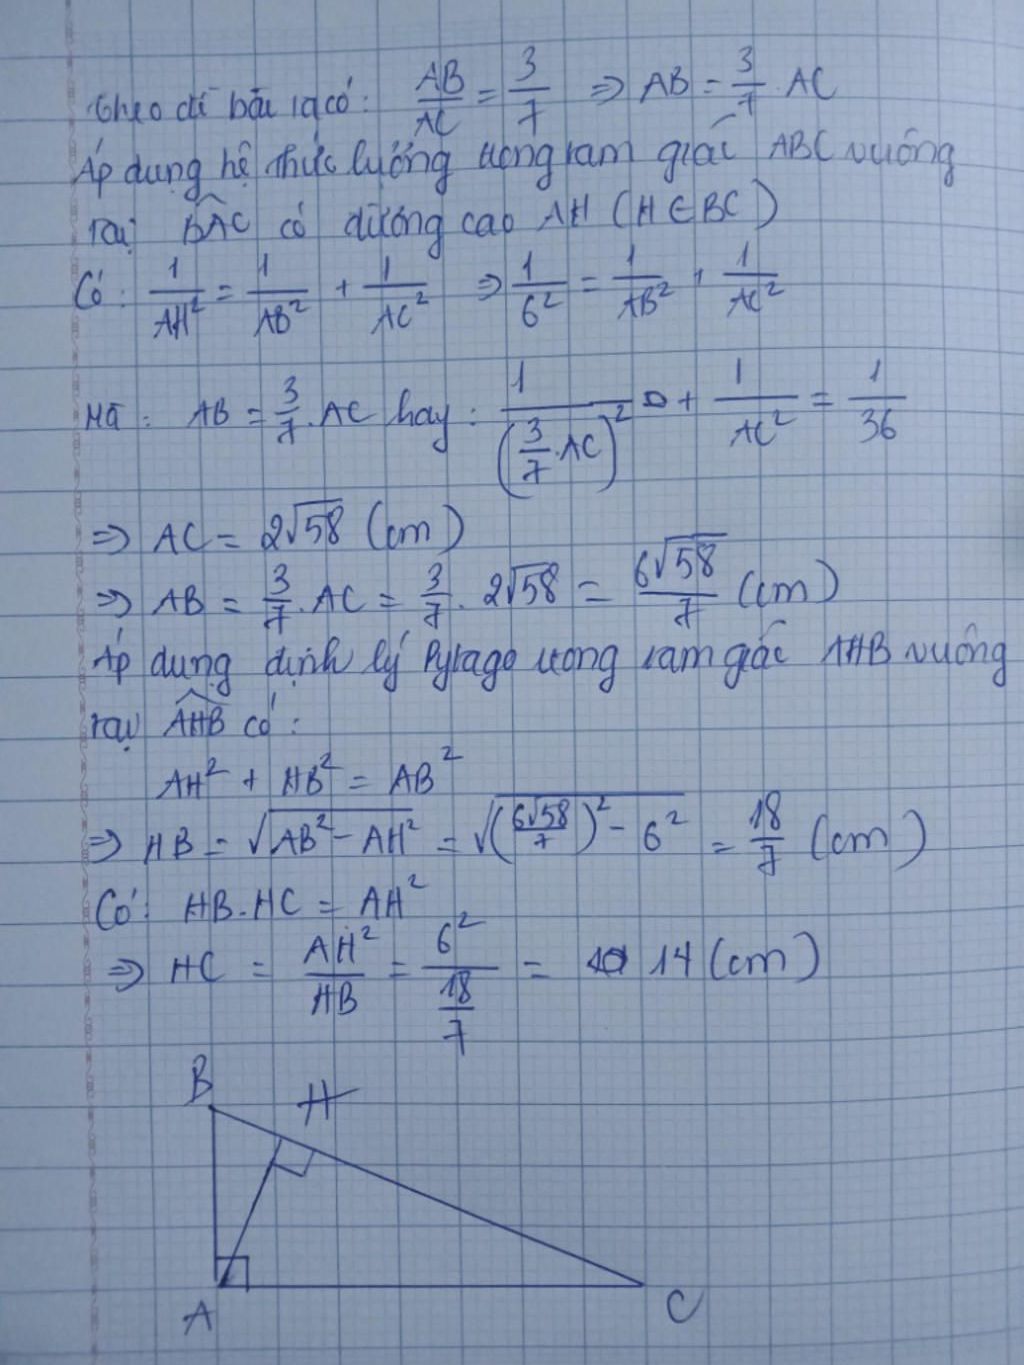 Theo đề bài ta có: AB/AC = 3/7 ⇒ AB = 3/7 . AC
Áp dụng hệ thức lượng trong tam giác ABC vuông
tại BÂC có đường cao AH (H ∈ BC)
Có: 1/AH² = 1/AB² + 1/AC² ⇒ 1/6² = 1/AB² + 1/AC²
Mà: AB = 3/7 . AC hay: 1/(3/7 . AC)² + 1/AC² = 1/36
⇒ AC = 2√58 (cm)
⇒ AB = 3/7 . AC = 3/7 . 2√58 = 6√58/7 (cm)
Áp dụng định lý Pytago trong tam giác AHB vuông
tại AHB có:
AH² + HB² = AB²
⇒ HB = √(AB² - AH²) = √((6√58/7)² - 6²) = 18/7 (cm)
Có: HB . HC = AH²
⇒ HC = AH²/HB = 6²/(18/7) = 14 (cm)
B
H
A
C